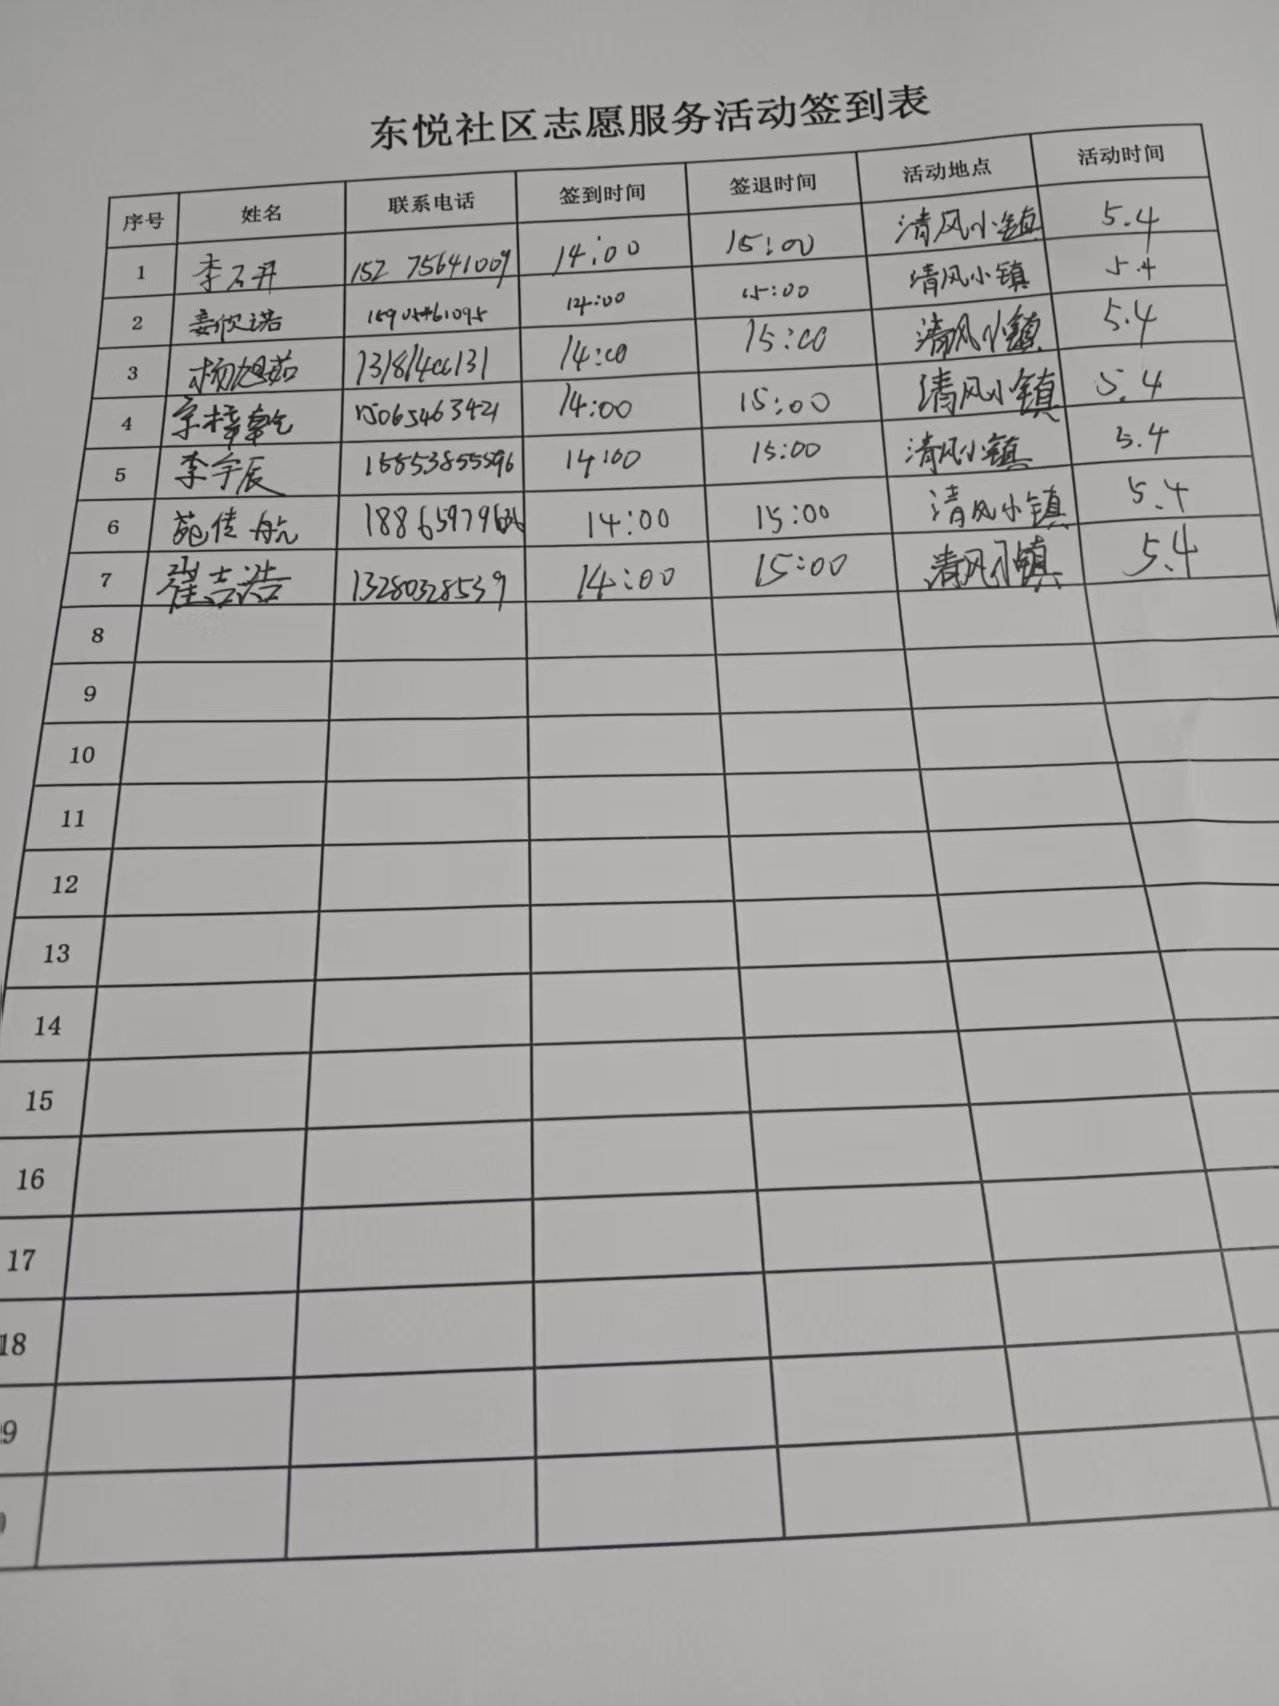 东悦社区志愿服务活动签到表
序号 姓名 联系电话 签到时间 签退时间 活动地点 活动时间
1 李石开 152 75641009 14:00 15:00 清风小镇 5.4
2 姜欣诺 15905461095 14:00 15:00 清风小镇 5.4
3 杨旭茹 14:00 15:00 清风小镇 5.4
4 15065463421 14:00 15:00 清风小镇 5.4
5 李宇辰 15853855596 14:00 15:00 清风小镇 5.4
6 苑佳航 14:00 15:00 清风小镇 5.4
7 翟吉浩 13280328539 14:00 15:00 清风小镇 5.4
8
9
10
11
12
13
14
15
16
17
18
9